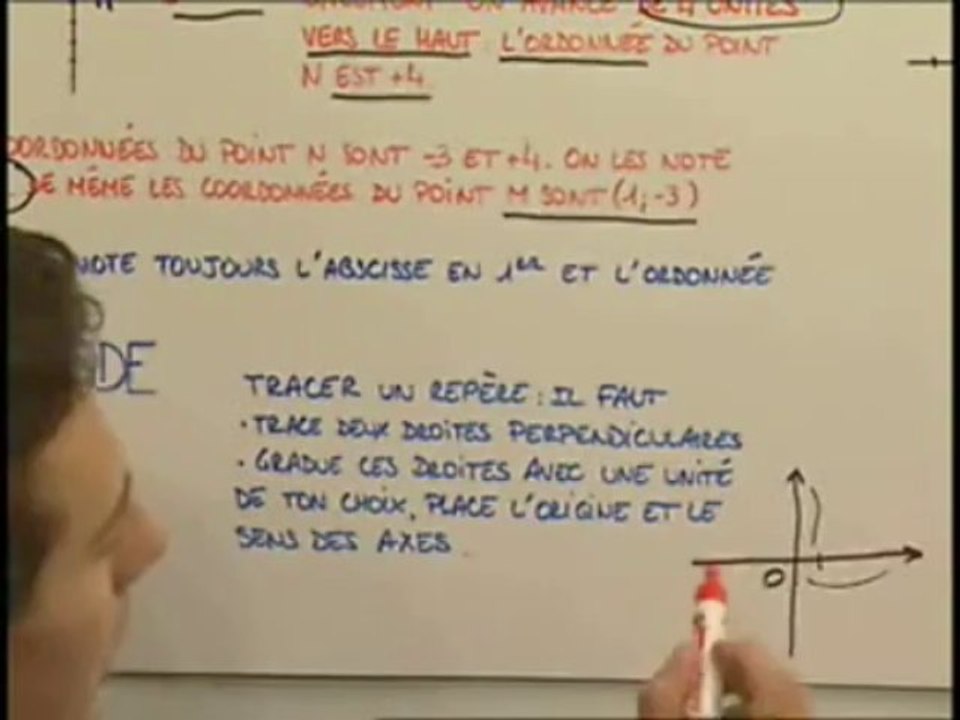 ON AVANCE DE 4 UNITÉS
VERS LE HAUT L'ORDONNÉE DU POINT
N EST +4.
OORDONNÉES DU POINT N SONT -3 ET +4. ON LES NOTE
DE MÊME LES COORDONNÉES DU POINT M SONT (1; -3)
NOTE TOUJOURS L'ABSCISSE EN 1ER ET L'ORDONNÉE
DE
TRACER UN REPÈRE: IL FAUT
• TRACE DEUX DROITES PERPENDICULAIRES
• GRADUE CES DROITES AVEC UNE UNITÉ
DE TON CHOIX, PLACE L'ORIGINE ET LE
SENS DES AXES.
O